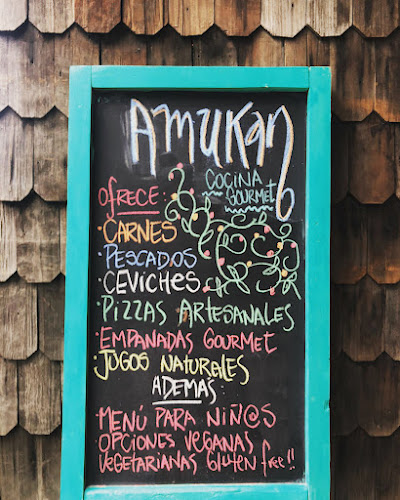 AMUKAN
COCINA
GOURMET
OFRECE:
·CARNES
·PESCADOS
·CEVICHES
·PIZZAS ARTESANALES
·EMPANADAS GOURMET
·JUGOS NATURALES
ADEMAS
·MENÚ PARA NIÑ@S
·OPCIONES VEGANAS
VEGETARIANAS Gluten free!!